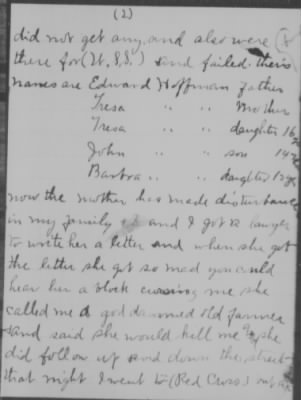 (2)
did not get any, and also were
there for (U.S.S.) and failed. theirs
names are Edward Hoffman father
Tresa " " Mother
Tresa " " daughter 16 yr
John " " son 14 yr
Barbra " " daughter 12 yr
now the mother has made disturbance
in my family and I got a lawyer
to wrote her a letter and when she got
the letter she got so mad you could
hear her a block cursing me she
called me a god dammed old farmer
and said she would kill me & she
did follow up and down the street
that night I went to (Red Cross) out